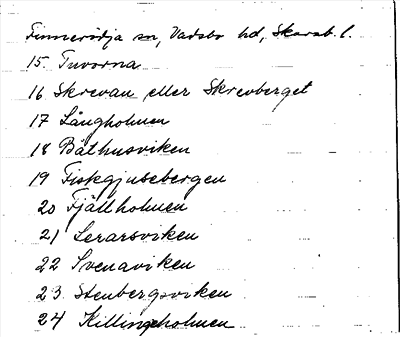 Finnerödja sn, Vadsbo hd, Skarab. l.
15. Tuvorna
16 Skrevan eller Skrevberget
17 Långholmen
18 Båthusviken
19 Fiskgjusebergen
20 Fjällholmen
21 Lerarsviken
22 Svenaviken
23 Stenbergsviken
24 Killingholmen